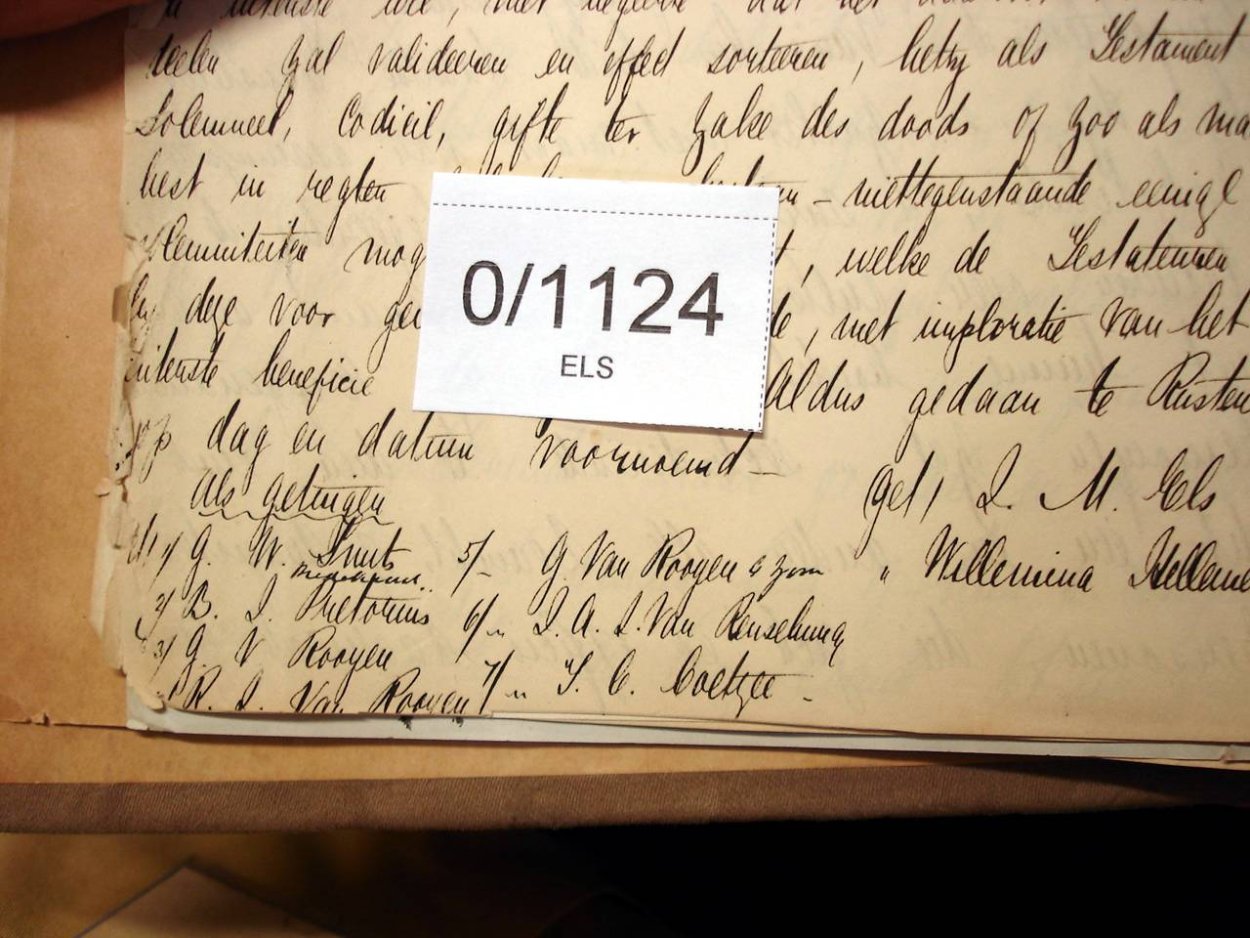 intenste wil, met
teelen zal valideeren en effect sorteeren, hetzy als Testament
Solemneel, Codicil, gifte ter zake des doods of zoo als ma
best in regten – niettegenstaande eenige
solemniteiten mog , welke de Testateuren
by deze voor ge de, met imploratie van het
intenste beneficie Aldus gedaan te Rusten
op dag en datum voornoemd –
get/ J. M. Els
als getuigen
" Willemina
1/ G. W. Smits
2/ B. J. Pretorius
3/ G. V Rooyen
R. J. Van Rooyen
5/ G. Van Rooyen Gzoon
6/ " J. A. J. Van Rensburg
7/ " T. C. Coetzee –
0/1124
ELS